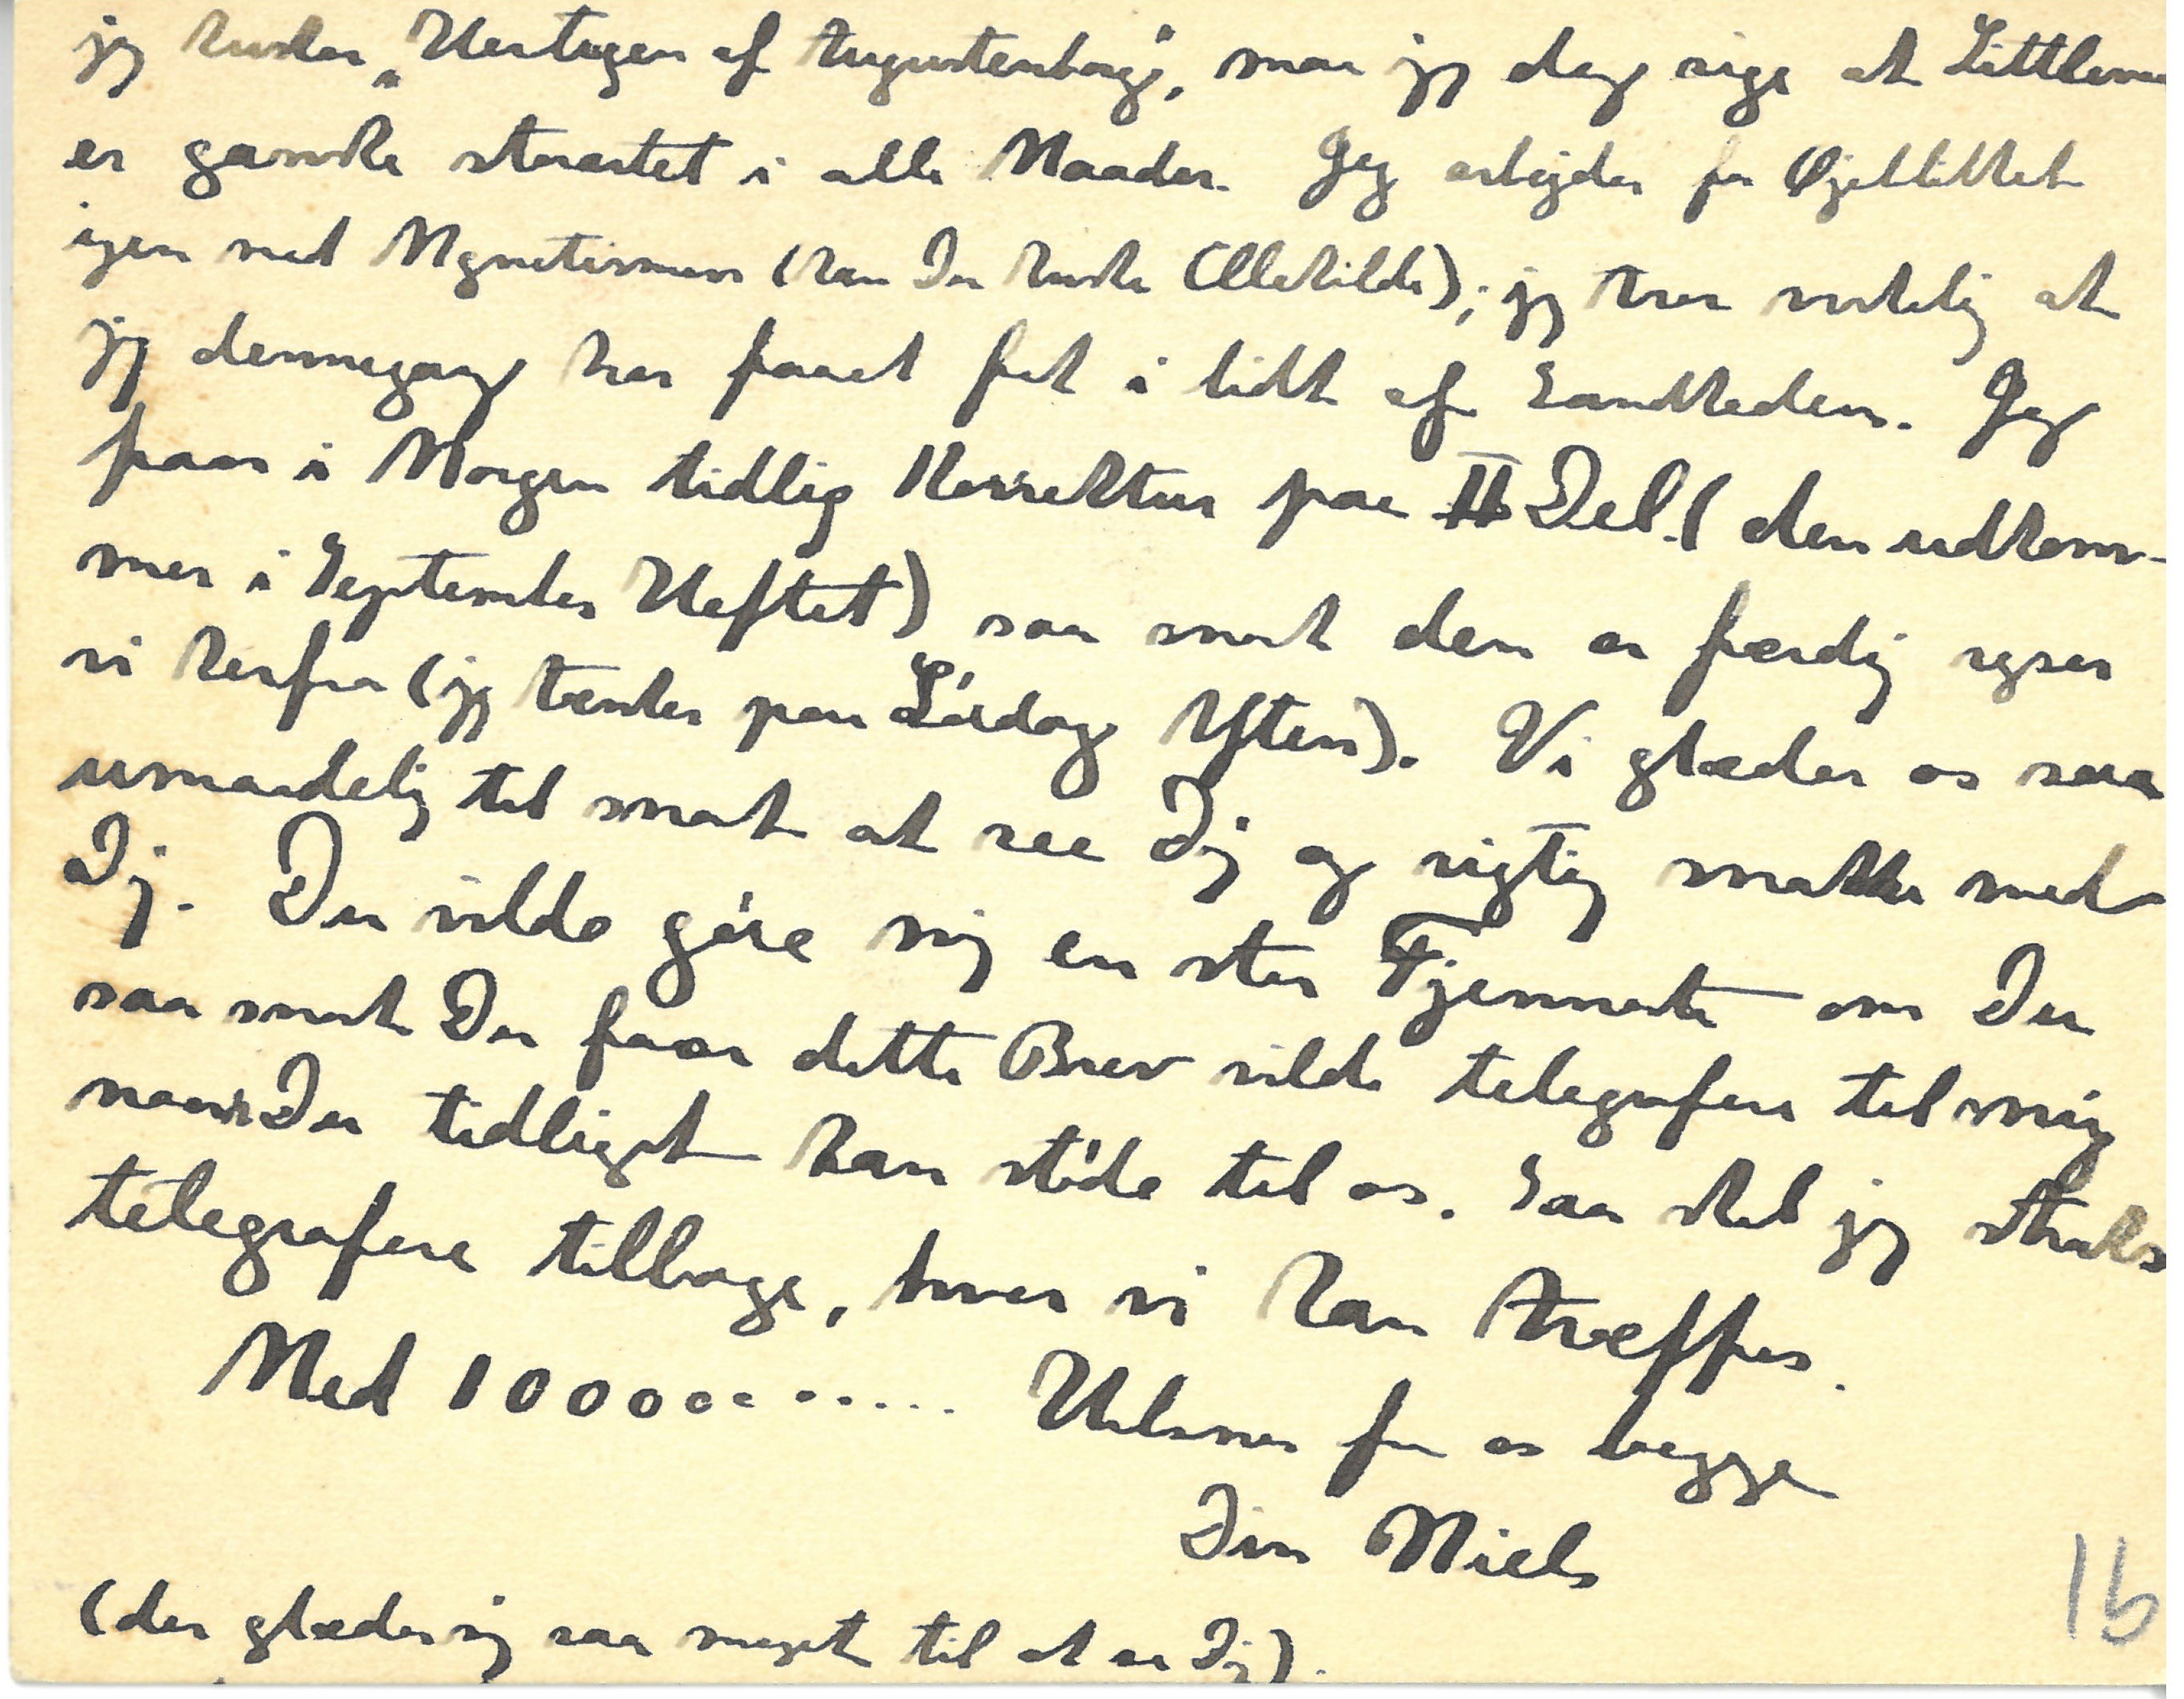 jeg husker „Hertugen af Augustenborg", maa jeg dog sige at Littlem
er ganske storartet i alle Maader. Jeg arbejder for Øjeblikket
igen med Mgnetismen (kan Du huske Ollekilde); jeg tror virkelig at
jeg dennegang har faaet fat i lidt af Sandheden. Jeg
faar i Morgen tidlig Korrektur paa II Del. (den udkom-
mer i September Heftet) saa snart den er færdig rejser
vi herfra (jeg tænker paa Lördag Aften). Vi glæder os saa
umaadelig til snart at see Dig og rigtig snakke med
Dig. Du vilde göre mig en stor Tjenneste om Du
saa snart Du faar dette Brev vilde telegrafere til mig
naar Du tidligst kan stöde til os. Saa skal jeg straks
telegrafere tilbage, hvor vi kan træffes.
Med 1000000...... Hilsner fra os begge
Din Niels
(der glæder sig saa meget til at se Dig).
1b